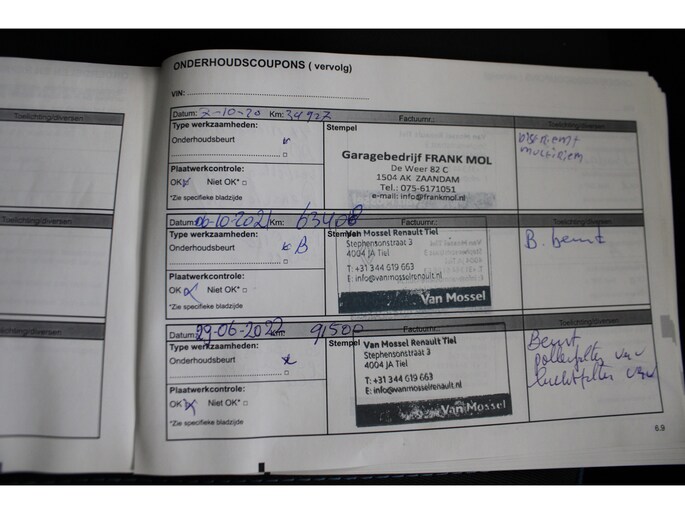 ONDERHOUDSCOUPONS ( vervolg)
VIN:
Toelichting/diversen
Datum: 2-10-20 Km: 34927 Factuurnr.: Toelichting/diversen
Type werkzaamheden: Stempel
Onderhoudsbeurt
Plaatwerkcontrole:
OK Niet OK*
*Zie specifieke bladzijde
Garagebedrijf FRANK MOL
De Weer 82 C
1504 AK ZAANDAM
Tel.: 075-6171051
e-mail: info@frankmol.nl
multiriem
Toelichting/diversen
Datum: 06-10-2021 Km: 63408 Factuurnr.: Toelichting/diversen
Type werkzaamheden: Stempel
Onderhoudsbeurt B
Plaatwerkcontrole:
OK Niet OK*
*Zie specifieke bladzijde
Van Mossel Renault Tiel
Stephensonstraat 3
4004 JA Tiel
T: +31 344 619 663
E: info@vanmosselrenault.nl
Van Mossel
B. beurt
Toelichting/diversen
Datum: 29-06-2022 Km: 91500 Factuurnr.: Toelichting/diversen
Type werkzaamheden: Stempel
Onderhoudsbeurt
Plaatwerkcontrole:
OK Niet OK*
*Zie specifieke bladzijde
Van Mossel Renault Tiel
Stephensonstraat 3
4004 JA Tiel
T: +31 344 619 663
E: info@vanmosselrenault.nl
Van Mossel
Beurt
pollenfilter
luchtfilter
6.9